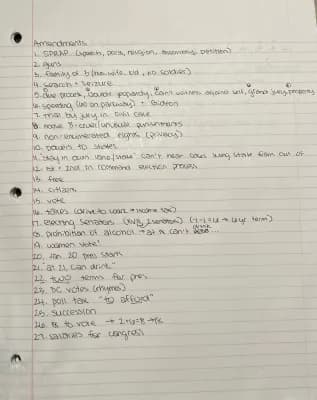 Amendments
1. SPRAP (speech, press, religion, assembly, petition)
2. guns
3. family of 3 (no wife, kid, no soldier)
4. search + seizure
5. due process, double jeopardy, can't witness against self, grand jury, property
6. speeding (60 on parkway) +
7. trial by jury in civil case
8. 8 = cruel/unusual punishments
9. non-enumerated rights (privacy)
10. powers to states
11. stay in own lane/state can't hear cases suing state from out of
12. 1st + 2nd in command election process
13. free
14. citizens
15. vote
16. taxes (drive to work → income tax)
17. electing senators (2 senators) (6 yr. term)
18. prohibition of alcohol → at 18 can't drink
19. women vote!
20. Jan. 20 pres starts
21. "at 21, can drink"
22. two terms for pres.
23. DC votes (rhymes)
24. poll tax "to afford"
25. succession
26. 18 to vote
27. salaries for congress